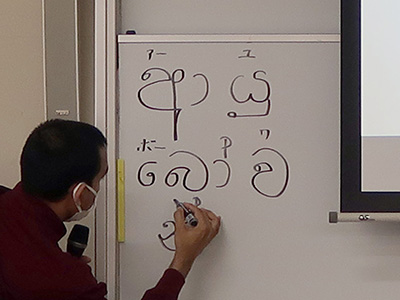 アー ユ
ආ යු
ボー ワ
බෝ ව
OS